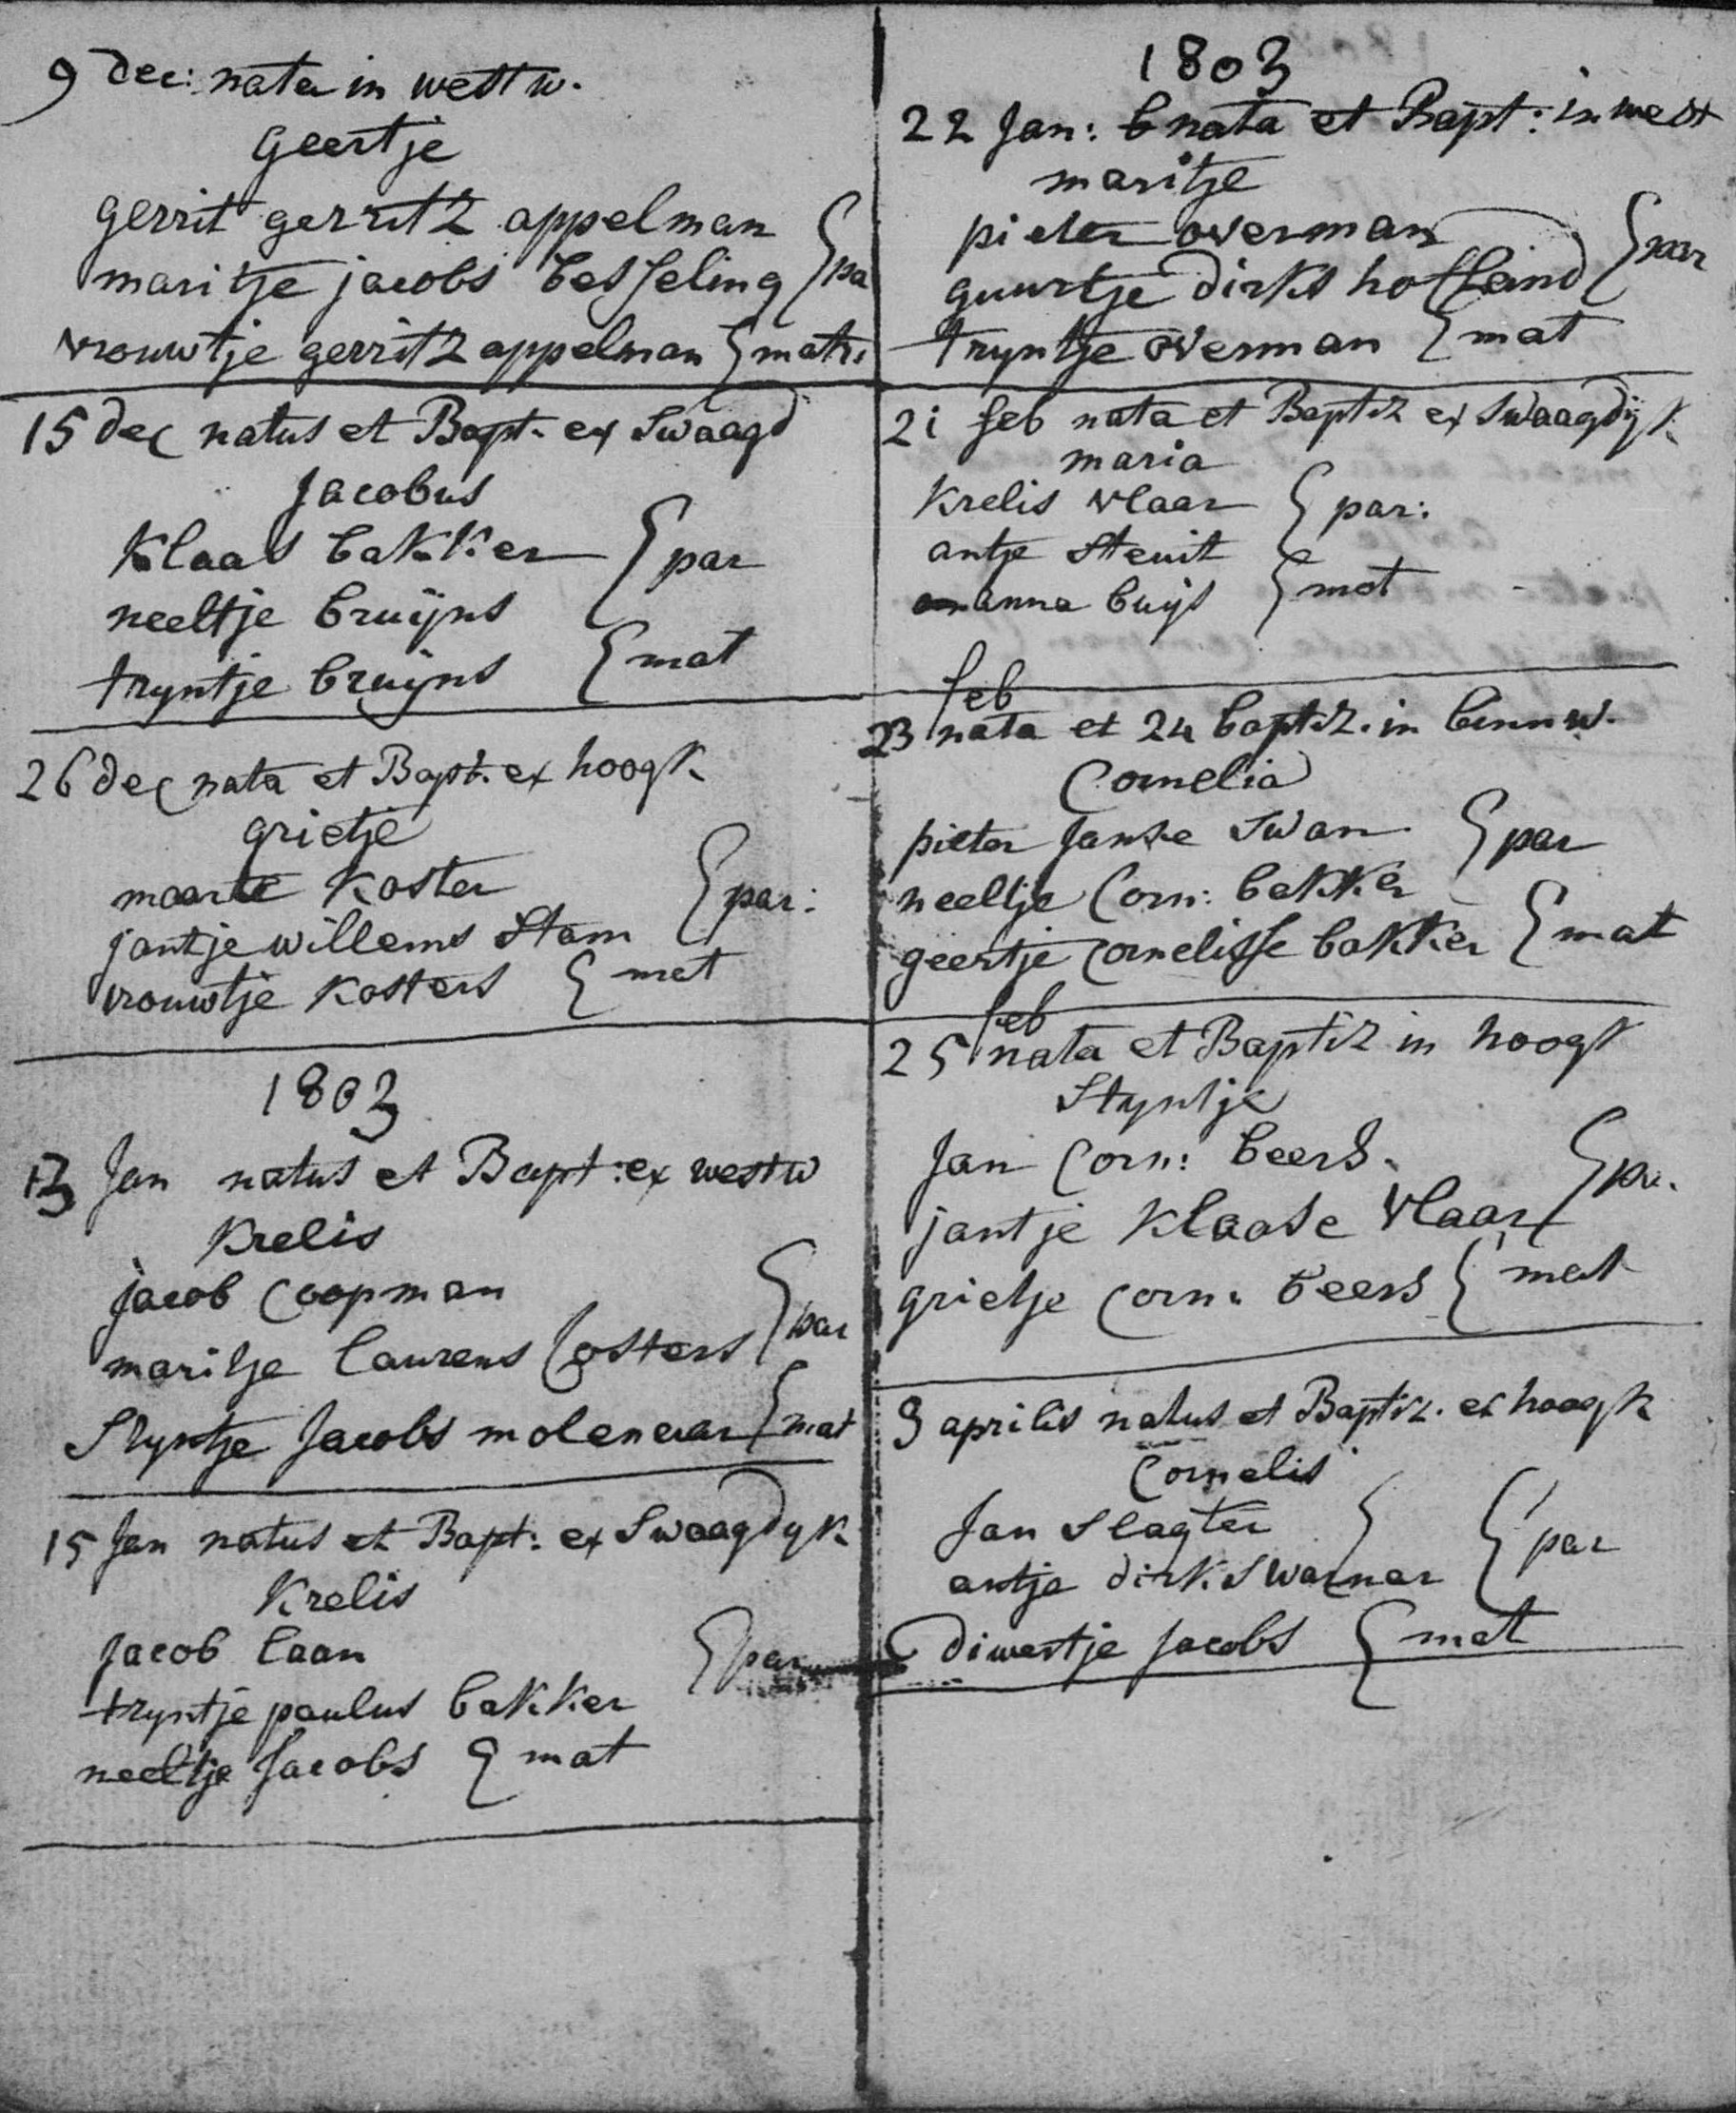 9 dec: nata in westw.
geertje
gerrit gerritz appelman
maritje jacobs besseling } pa
vrouwtje gerritz appelman } matr.
15 dec natus et Bapt. ex Swaagd
Jacobus
Klaas bakker } par
neeltje bruijns
tryntje bruijns } mat
26 dec nata et Bapt. ex hoogk
grietje
maarte Koster
jantje willems Stam } par:
vrouwtje Kosters } met
1803
13 Jan natus et Bapt: ex westw
Krelis
jacob Coopman
maritje laurens Costers } par
Styntje Jacobs molenaar } mat
15 Jan natus et Bapt: ex Swaagdyk
Krelis
Jacob laan
tryntje paulus bakker } par
neeltje Jacobs } mat
1803
22 Jan: nata et Bapt: in west
maritje
pieter overman
guurtje dirks hofland } par
tryntje overman } mat
21 feb nata et Baptiz ex Swaagdijk
maria
Krelis vlaar } par:
antje Steuit
anna buijs } met
feb
23 nata et 24 baptiz. in bennw.
Cornelia
pieter Janse Swan } par
neeltje Corn: bakker
geertje Cornelisse bakker } mat
feb
25 nata et Baptiz in hoogk
Styntje
Jan Corn: beers.
jantje Klaase vlaar } par.
grietje Corn: beers } mat
9 aprilis natus et Baptiz. ex hoogk
Cornelis
Jan Slagter
antje dirks warnar } par
diwertje Jacobs } met